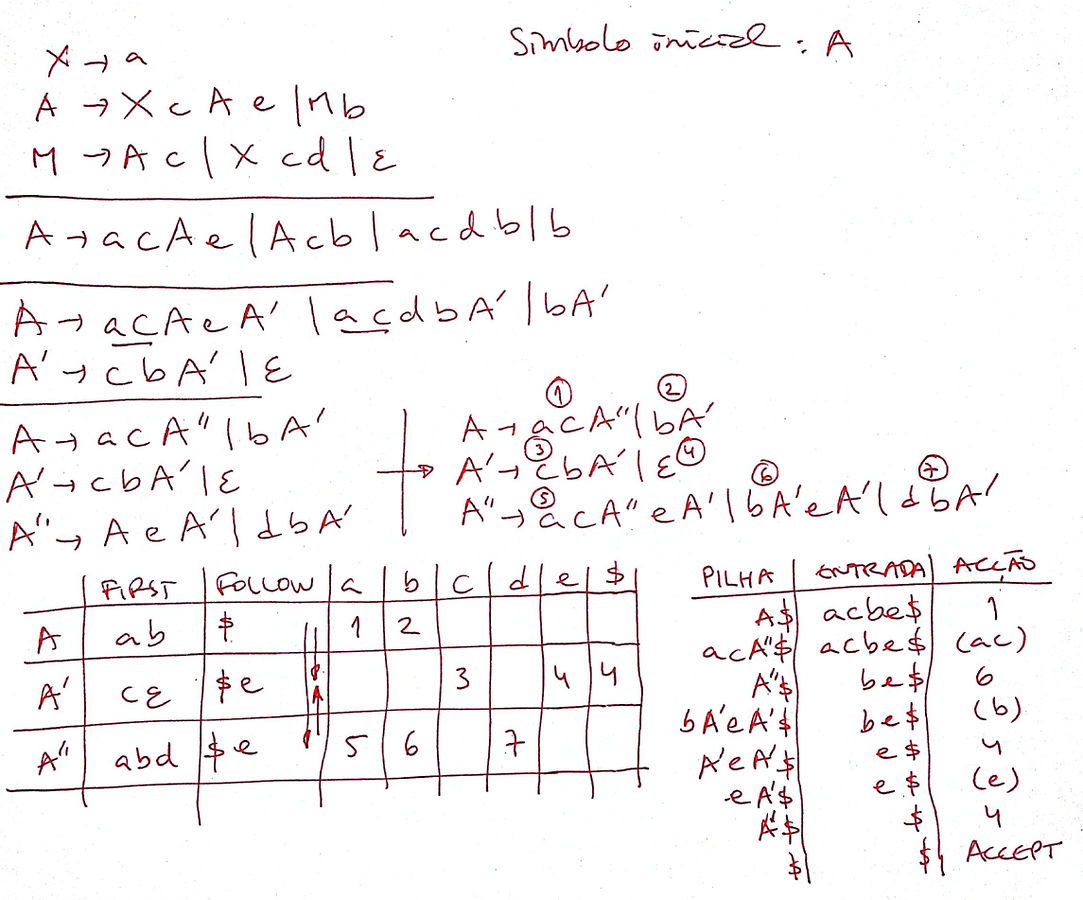 X → a
Símbolo inicial : A
A → X c A e | M b
M → A c | X c d | ε
A → a c A e | A c b | a c d b | b
A → a c A e A' | a c d b A' | b A'
A' → c b A' | ε
A → a c A'' | b A'
A' → c b A' | ε
A'' → A e A' | d b A'
① ②
A → a c A'' | b A'
③ ④
A' → c b A' | ε
⑤ ⑥ ⑦
A'' → a c A'' e A' | b A' e A' | d b A'
FIRST FOLLOW a b c d e $
A ab $ 1 2
A' c ε $ e 3 4 4
A'' abd $ e 5 6 7
PILHA ENTRADA ACÇÃO
A$ acbe$ 1
acA''$ acbe$ (ac)
A''$ be$ 6
bA'eA'$ be$ (b)
A'eA'$ e$ 4
eA'$ e$ (e)
A'$ $ 4
$ $ ACCEPT